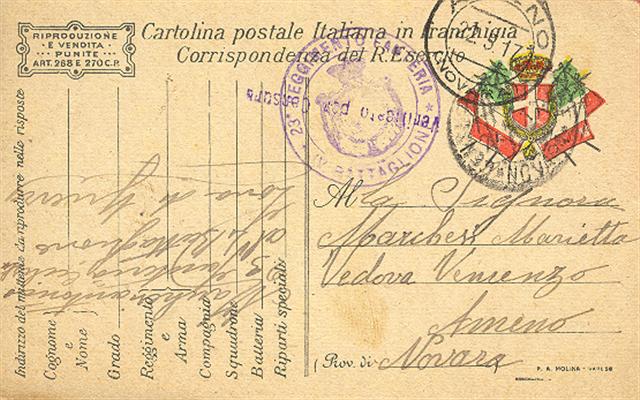 RIPRODUZIONE
E VENDITA
PUNITE
ART. 268 E 270 C.P.
Cartolina postale Italiana in franchigia
Corrispondenza del R. Esercito
22.3.17
23° REGGIMENTO FANTERIA
Verificato per Censura
IV BATTAGLIONE
Indirizzo del mittente da riprodurre nelle risposte
Cognome e Nome
Grado
Reggimento e Arma
Compagnia
Squadrone
Batteria
Riparti speciali
Zona di guerra
Alla Signora
Marchesi Marietta
Vedova Vincenzo
Ameno
(Prov. di Novara
P. A. MOLINA - VARESE